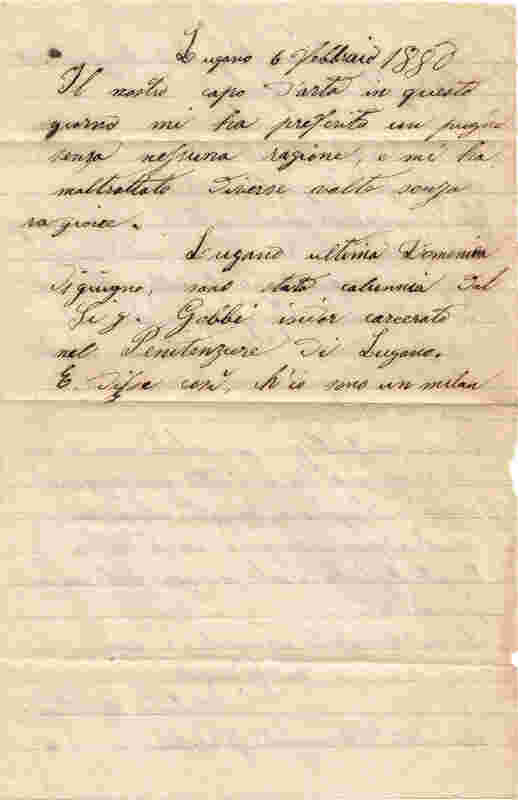 Lugano 6 Febbraio 1880
Il nostro capo d'arte in questo
giorno mi ha preferito un pugno
senza nessuna ragione, e mi ha
maltrattato diverse volte senza
ragione.
Lugano ultima Domenica
di giugno, sono stato calunnia dal
Sig. Gobbi incarcerato
nel Penitenziere di Lugano.
E. disse così, ch'io sono un milan